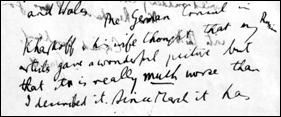 and Wales. The German Consul in
Kharkoff & his wife thought that my
articles gave a wonderful picture but
that it is really much worse than
I described it. Since March it has